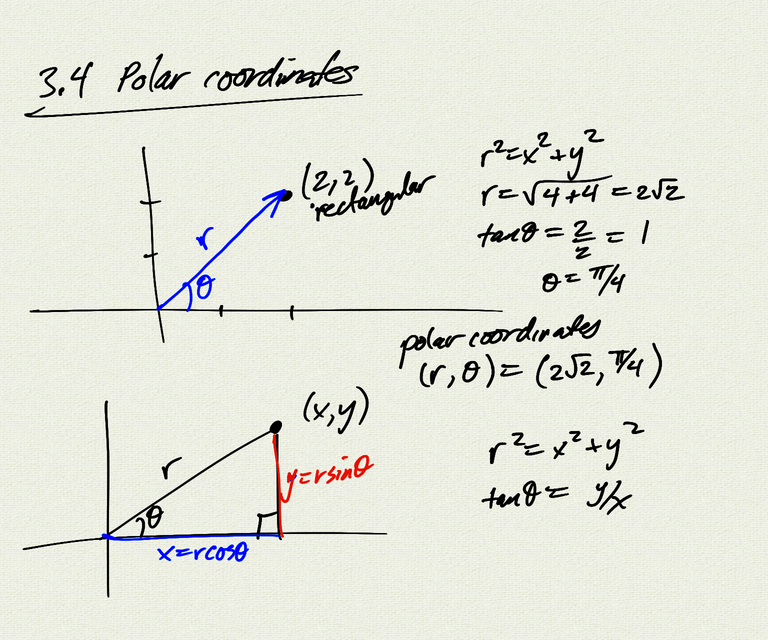 3.4 Polar coordinates
(2,2)
rectangular
r
θ
r²=x²+y²
r=√4+4 = 2√2
tanθ = 2/2 = 1
θ=π/4
polar coordinates
(r,θ)=(2√2,π/4)
(x,y)
r
θ
y=rsinθ
x=rcosθ
r²=x²+y²
tanθ= y/x